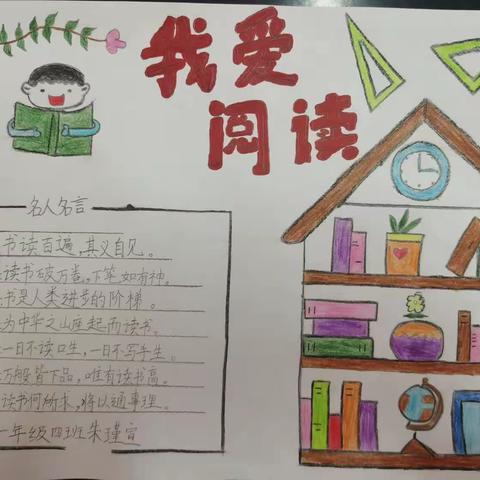 我爱
阅读
名人名言
书读百遍,其义自见。
读书破万卷,下笔如有神。
书是人类进步的阶梯。
为中华之山屋起而读书。
一日不读口生,一日不写手生。
万般皆下品,唯有读书高。
读书何所求,将以通事理。
一年级四班朱瑾